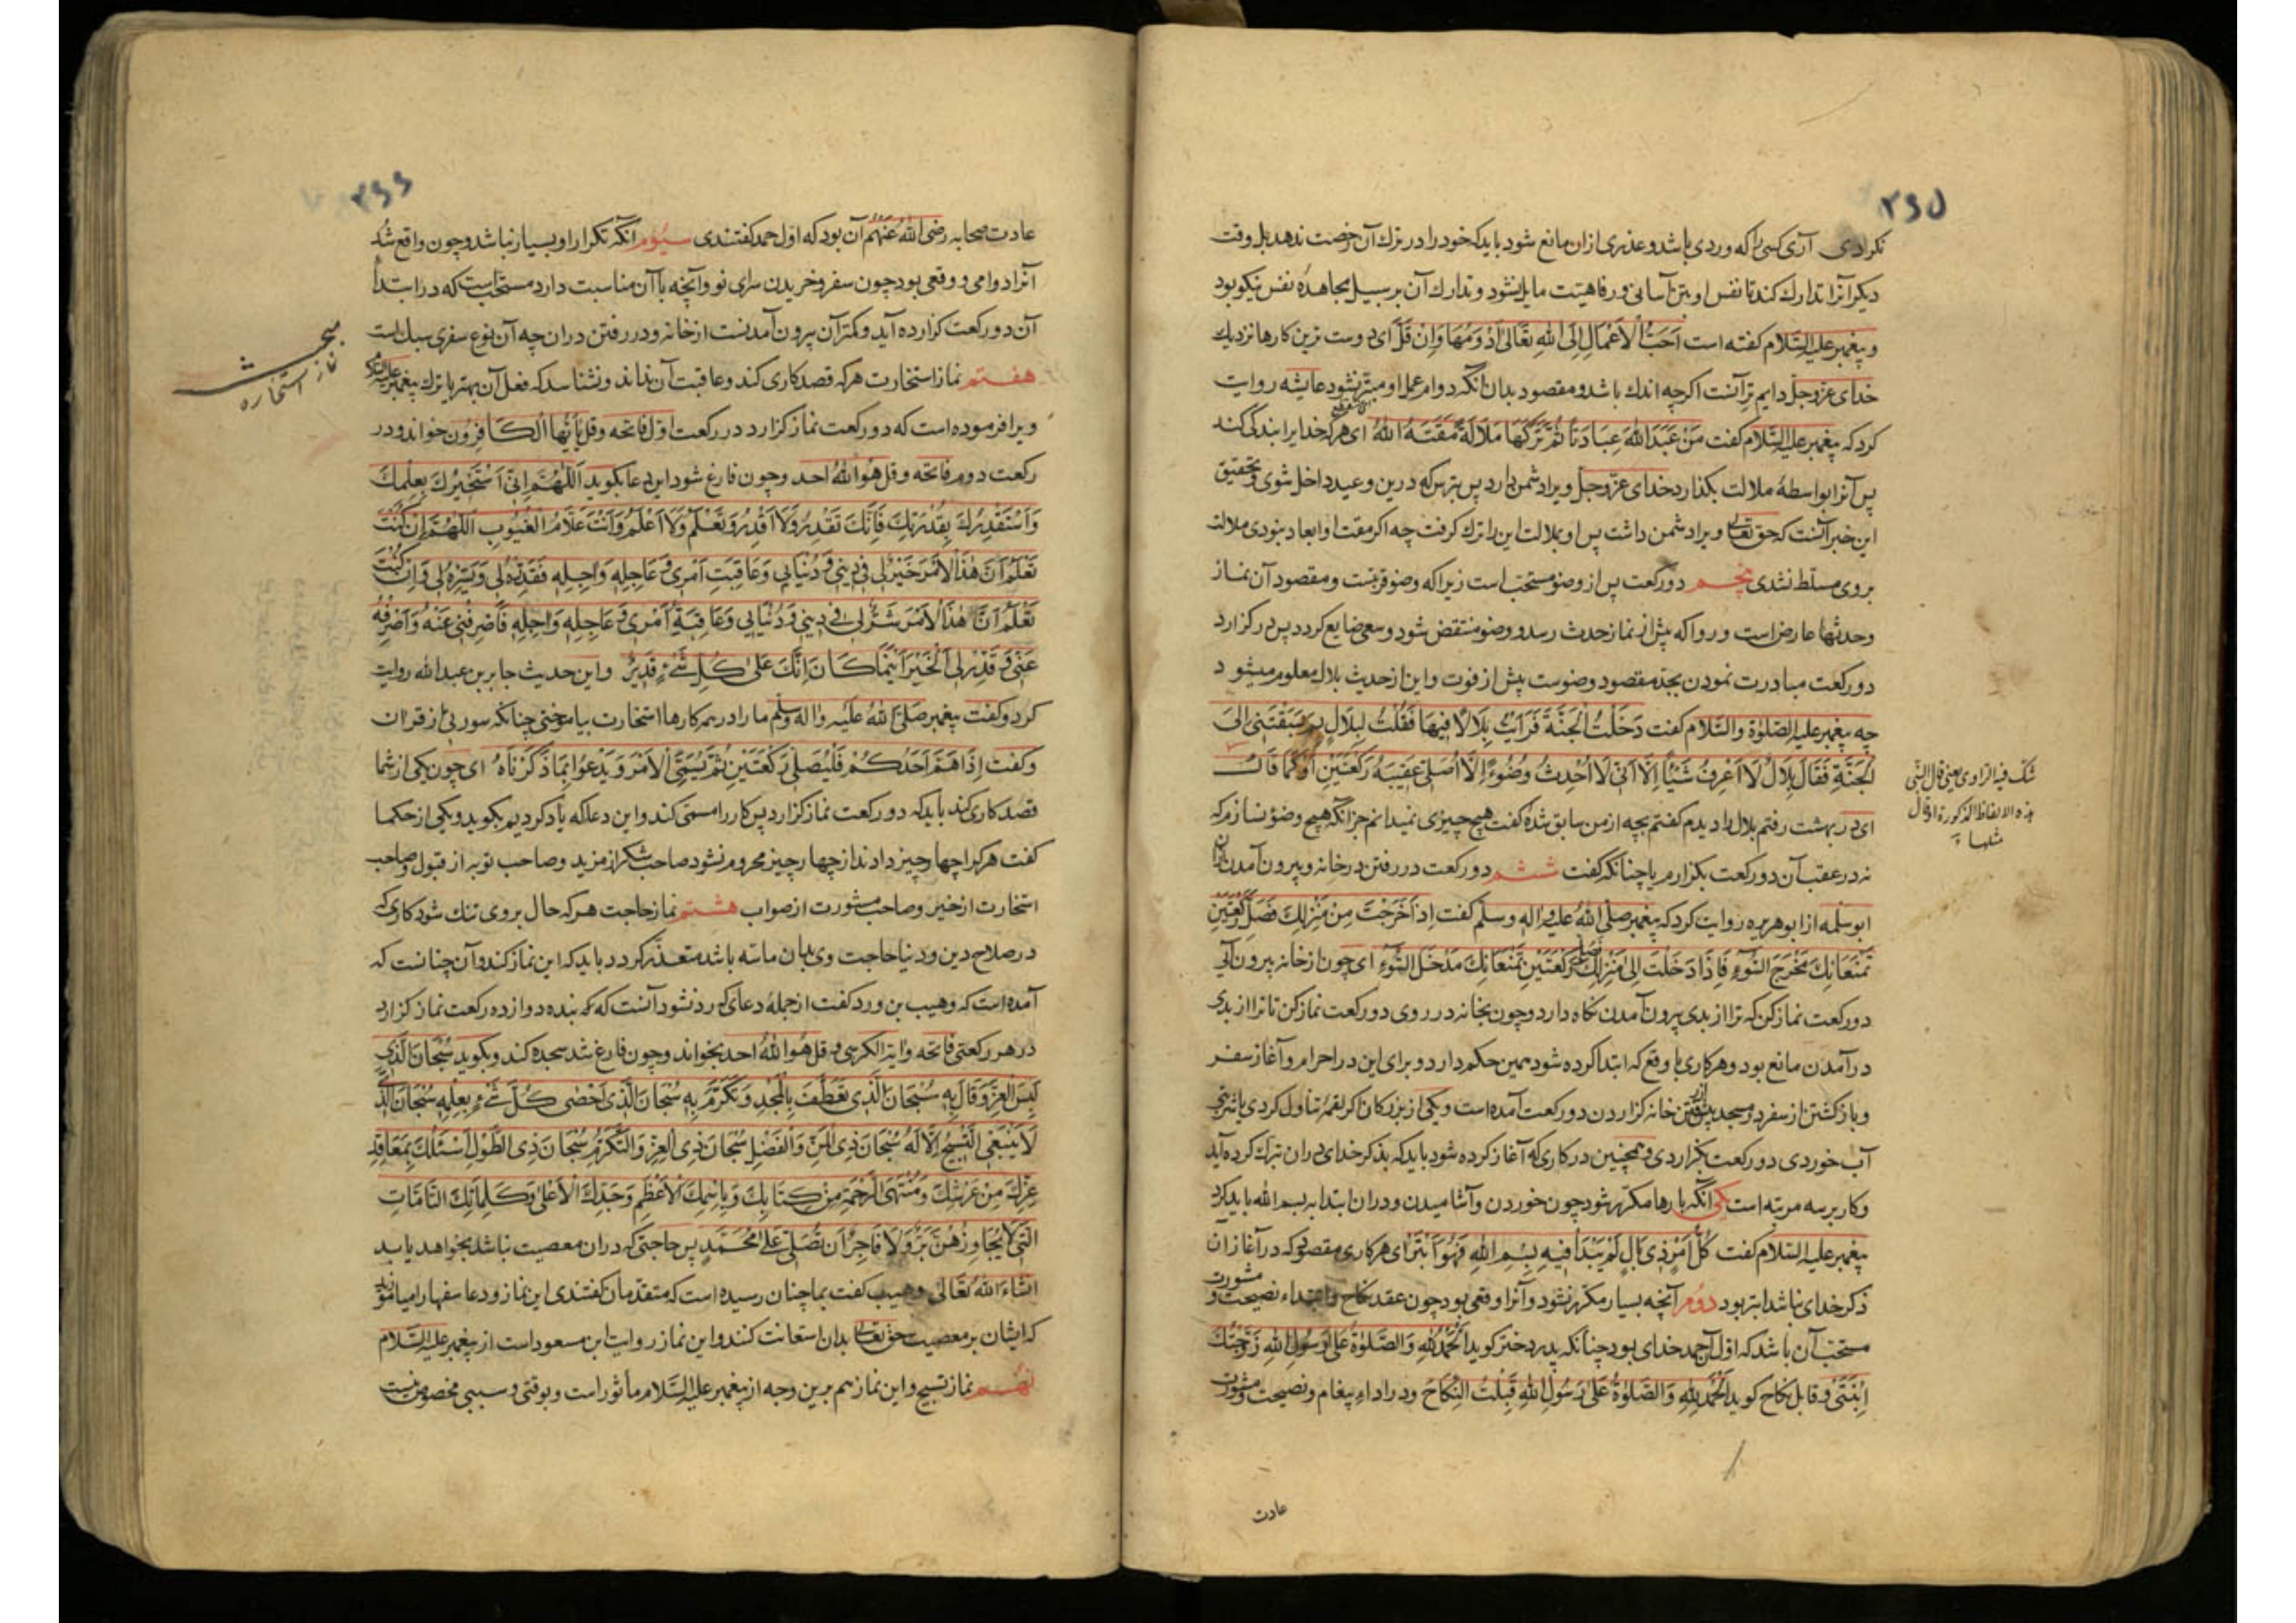 ۲۶۵
نکردی آری کسی را که وردی باشد و عذری ازان مانع شود باید که خود را در ترك آن رخصت ندهد بل وقت
دیکر آنرا تدارك کند تا نفس او بتن آسانی و رفاهیت مایل نشود و تدارك آن بر سبیل مجاهده نفس نیکو بود
و پیغمبر علیه السّلام کفته است اَحَبُّ الْاَعْمَالِ اِلَی اللهِ تَعَالَی اَدْوَمُهَا وَاِنْ قَلَّ ای دوست ترین کارها نزدیك
خدای عزّ و جلّ دایم ترانست اکرچه اندك باشد و مقصود بدان آنکه دوام عمل او مبتر نشود عایشه روایت
کرد که پیغمبر علیه السّلام کفت مَنْ عَبَدَ اللهَ عِبَادَةً ثُمَّ تَرَكَهَا مَلَالَةً مَقَتَهُ اللهُ ای هرکه خدایرا بندکی کند
پس آنرا بواسطهٔ ملالت بکذارد خدای عزّ و جلّ ویرا دشمن دارد پس بترس که درین وعید داخل شوی و تحقیق
این خبر آنست که حق تعالی ویرا دشمن داشت پس او بملالت این را ترك کرفت چه اکر مقت او ابعاد نبودی ملالت
بروی مسلّط نشدی پنجم دو رکعت پس از وضو مستحب است زیرا که وضو قربتست و مقصود آن نماز
وحدثها عارض است و روا که پیش از نماز حدث رسد و وضو منتقض شود و سعی ضایع کردد پس در کزارد
دو رکعت مبادرت نمودن بجد مقصود وضوست پیش از فوت و این از حدیث بلال معلوم میشود
چه پیغمبر علیه الصّلوة والسّلام کفت دَخَلْتُ الْجَنَّةَ فَرَاَیْتُ بِلَالًا فِیهَا فَقُلْتُ لِبِلَالٍ بِمَ سَبَقْتَنِی اِلَی
الْجَنَّةِ فَقَالَ بِلَالٌ لَا اَعْرِفُ شَیْئًا اِلَّا اَنِّی لَا اُحْدِثُ وُضُوءً اِلَّا اُصَلِّی عَقِیبَهُ رَکْعَتَیْنِ اَوْ کَمَا قَالَ
ای در بهشت رفتم بلال را دیدم کفتم بچه از من سابق شدهٔ کفت هیچ چیزی نمیدانم جز آنکه هیچ وضو نسازم که
نه در عقب آن دو رکعت بکزارم یا چنانکه کفت ششم دو رکعت در رفتن در خانه و بیرون آمدن ازان
ابو سلمه از ابو هریره روایت کرد که پیغمبر صلّی اللهُ علیه واله وسلّم کفت اِذَا خَرَجْتَ مِنْ مَنْزِلِكَ فَصَلِّ رَکْعَتَیْنِ
تَمْنَعَانِكَ مَخْرَجَ السُّوْءِ فَاِذَا دَخَلْتَ اِلَی مَنْزِلِكَ فَصَلِّ رَکْعَتَیْنِ تَمْنَعَانِكَ مَدْخَلَ السُّوْءِ ای چون از خانه بیرون آئی
دو رکعت نماز کن که ترا از بدی بیرون آمدن نکاه دارد و چون بخانه در روی دو رکعت نماز کن تا ترا از بدی
در آمدن مانع بود و هر کاری با وقع که ابتدا کرده شود همین حکم دارد و برای این در احرام و آغاز سفر
و باز کشتن از سفر در مسجد پیش از رفتن خانه کزاردن دو رکعت آمده است و یکی از بزرکان اکر لقمهٔ تناول کردی یا شربتی
آب خوردی دو رکعت بکزاردی و همچنین در کاری که آغاز کرده شود باید که بذکر خدای دران تبرك کرده آید
و کار بر سه مرتبه است یکی آنکه بارها مکرّر شود چون خوردن و آشامیدن و دران ابتدا به بسم الله باید کرد
پیغمبر علیه السّلام کفت کُلُّ اَمْرٍ ذِی بَالٍ لَمْ یُبْدَأْ فِیهِ بِسْمِ اللهِ فَهُوَ اَبْتَرُ ای هر کاری مقصود که در آغاز آن
ذکر خدای نباشد ابتر بود دوم آنچه بسیار مکرّر نشود و آنرا وقعی بود چون عقد نکاح و ابتداء نصیحت و مشورت
مستحب آن باشد که اوّل آن حمد خدای بود چنانکه پدر دختر کوید اَلْحَمْدُ لِلهِ وَالصَّلوةُ عَلَی رَسُولِ اللهِ زَوَّجْتُكَ
اِبْنَتِی و قابل نکاح کوید اَلْحَمْدُ لِلهِ وَالصَّلوةُ عَلَی رَسُولِ اللهِ قَبِلْتُ النِّکَاحَ و در اداءِ پیغام و نصیحت و مشورت
عادت
شك فیه الراوی یعنی قال النبی
هذه الالفاظ المذکورة او قال
مثلها
۲۶۶
عادت صحابه رضی اللهُ عنهُم آن بود که اوّل حمد کفتندی سیوم آنکه تکرار او بسیار نباشد و چون واقع شد
آنرا دوامی و وقعی بود چون سفر و خریدن سرای نو و آنچه با آن مناسبت دارد مستحب است که در ابتدأ
آن دو رکعت کزارده آید و کمتر آن بیرون آمدنست از خانه و در رفتن دران چه آن نوع سفری سبك است
هفتم نماز استخارت هرکه قصد کاری کند و عاقبت آن نداند و نشناسد که فعل آن بهتر یا ترك پیغمبر علیه السلام
ویرا فرموده است که دو رکعت نماز کزارد در رکعت اوّل فاتحه و قل یَا اَیُّهَا الْکَافِرُون خواند و در
رکعت دوم فاتحه و قل هُوَ اللهُ احد و چون فارغ شود این دعا بکوید اَللّٰهُمَّ اِنِّی اَسْتَخِیرُكَ بِعِلْمِكَ
وَاَسْتَقْدِرُكَ بِقُدْرَتِكَ فَاِنَّكَ تَقْدِرُ وَلَا اَقْدِرُ وَتَعْلَمُ وَلَا اَعْلَمُ وَاَنْتَ عَلَّامُ الْغُیُوبِ اَللّٰهُمَّ اِنْ کُنْتَ
تَعْلَمُ اَنَّ هٰذَا الْاَمْرَ خَیْرٌ لِی فِی دِینِی وَدُنْیَایِی وَعَاقِبَتِ اَمْرِی وَعَاجِلِهِ وَاٰجِلِهِ فَقَدِّرْهُ لِی وَیَسِّرْهُ لِی وَاِنْ کُنْتَ
تَعْلَمُ اَنَّ هٰذَا الْاَمْرَ شَرٌّ لِی فِی دِینِی وَدُنْیَایِی وَعَاقِبَةِ اَمْرِی وَعَاجِلِهِ وَاٰجِلِهِ فَاصْرِفْنِی عَنْهُ وَاصْرِفْهُ
عَنِّی وَقَدِّرْ لِی الْخَیْرَ اَیْنَمَا کَانَ اِنَّكَ عَلٰی کُلِّ شَیْءٍ قَدِیرٌ و این حدیث جابر بن عبد الله روایت
کرد و کفت پیغمبر صَلَّی اللهُ عَلَیْهِ واٰله وسلّم ما را در همه کارها استخارت بیاموختی چنانکه سورتی از قرآن
و کفت اِذَا هَمَّ اَحَدُکُمْ فَلْیُصَلِّ رَکْعَتَیْنِ ثُمَّ یُسَمِّی الْاَمْرَ وَیَدْعُوا بِمَا ذَکَرْنَاهُ ای چون یکی از شما
قصد کاری کند باید که دو رکعت نماز کزارد پس کار را مسمّی کند و این دعا که یاد کردیم بکوید و یکی از حکما
کفت هرکرا چهار چیز دادند از چهار چیز محروم نشود صاحب شکر از مزید و صاحب توبه از قبول و صاحب
استخارت از خیر و صاحب مشورت از صواب هشتم نماز حاجت هرکه حال بروی تنك شود کاری که
در صلاح دین و دنیا حاجت وی بدان ماسه باشد متعذّر کردد باید که این نماز کند و آن چنانست که
آمده است که وهیب بن ورد کفت از جملهٔ دعای که رد نشود آنست که بنده دوازده رکعت نماز کزارد
در هر رکعتی فاتحه و ایة الکرسی و قل هُوَ اللهُ احد بخواند و چون فارغ شد سجده کند و بکوید سُبْحَانَ الَّذِی
لَبِسَ الْعِزَّ وَقَالَ بِهِ سُبْحَانَ الَّذِی تَعَطَّفَ بِالْمَجْدِ وَتَکَرَّمَ بِهِ سُبْحَانَ الَّذِی اَحْصٰی کُلَّ شَیْءٍ بِعِلْمِهِ سُبْحَانَ الَّذِی
لَا یَنْبَغِی التَّسْبِیحُ اِلَّا لَهُ سُبْحَانَ ذِی الْمَنِّ وَالْفَضْلِ سُبْحَانَ ذِی الْعِزِّ وَالتَّکَرُّمِ سُبْحَانَ ذِی الطَّوْلِ اَسْئَلُكَ بِمَعَاقِدِ
عِزِّكَ مِنْ عَرْشِكَ وَمُنْتَهَی الرَّحْمَةِ مِنْ کِتَابِكَ وَبِاسْمِكَ الْاَعْظَمِ وَجَدِّكَ الْاَعْلٰی وَکَلِمَاتِكَ التَّامَّاتِ
الَّتِی لَا یُجَاوِزُهُنَّ بَرٌّ وَلَا فَاجِرٌ اَنْ تُصَلِّیَ عَلٰی مُحَمَّدٍ پس حاجتی که دران معصیت نباشد بخواهد یابد
انشاء اللهُ تَعَالٰی وهیب کفت بما چنان رسیده است که متقدّمان کفتندی این نماز و دعا سفها را میاموزید
که ایشان بر معصیت حق تعالی بدان استعانت کنند و این نماز روایت ابن مسعود است از پیغمبر علیه السّلام
نهم نماز تسبیح و این نماز هم برین وجه از پیغمبر علیه السّلام مأثور است و بوقتی و سببی مخصوص نیست
مبحث
نماز استخاره